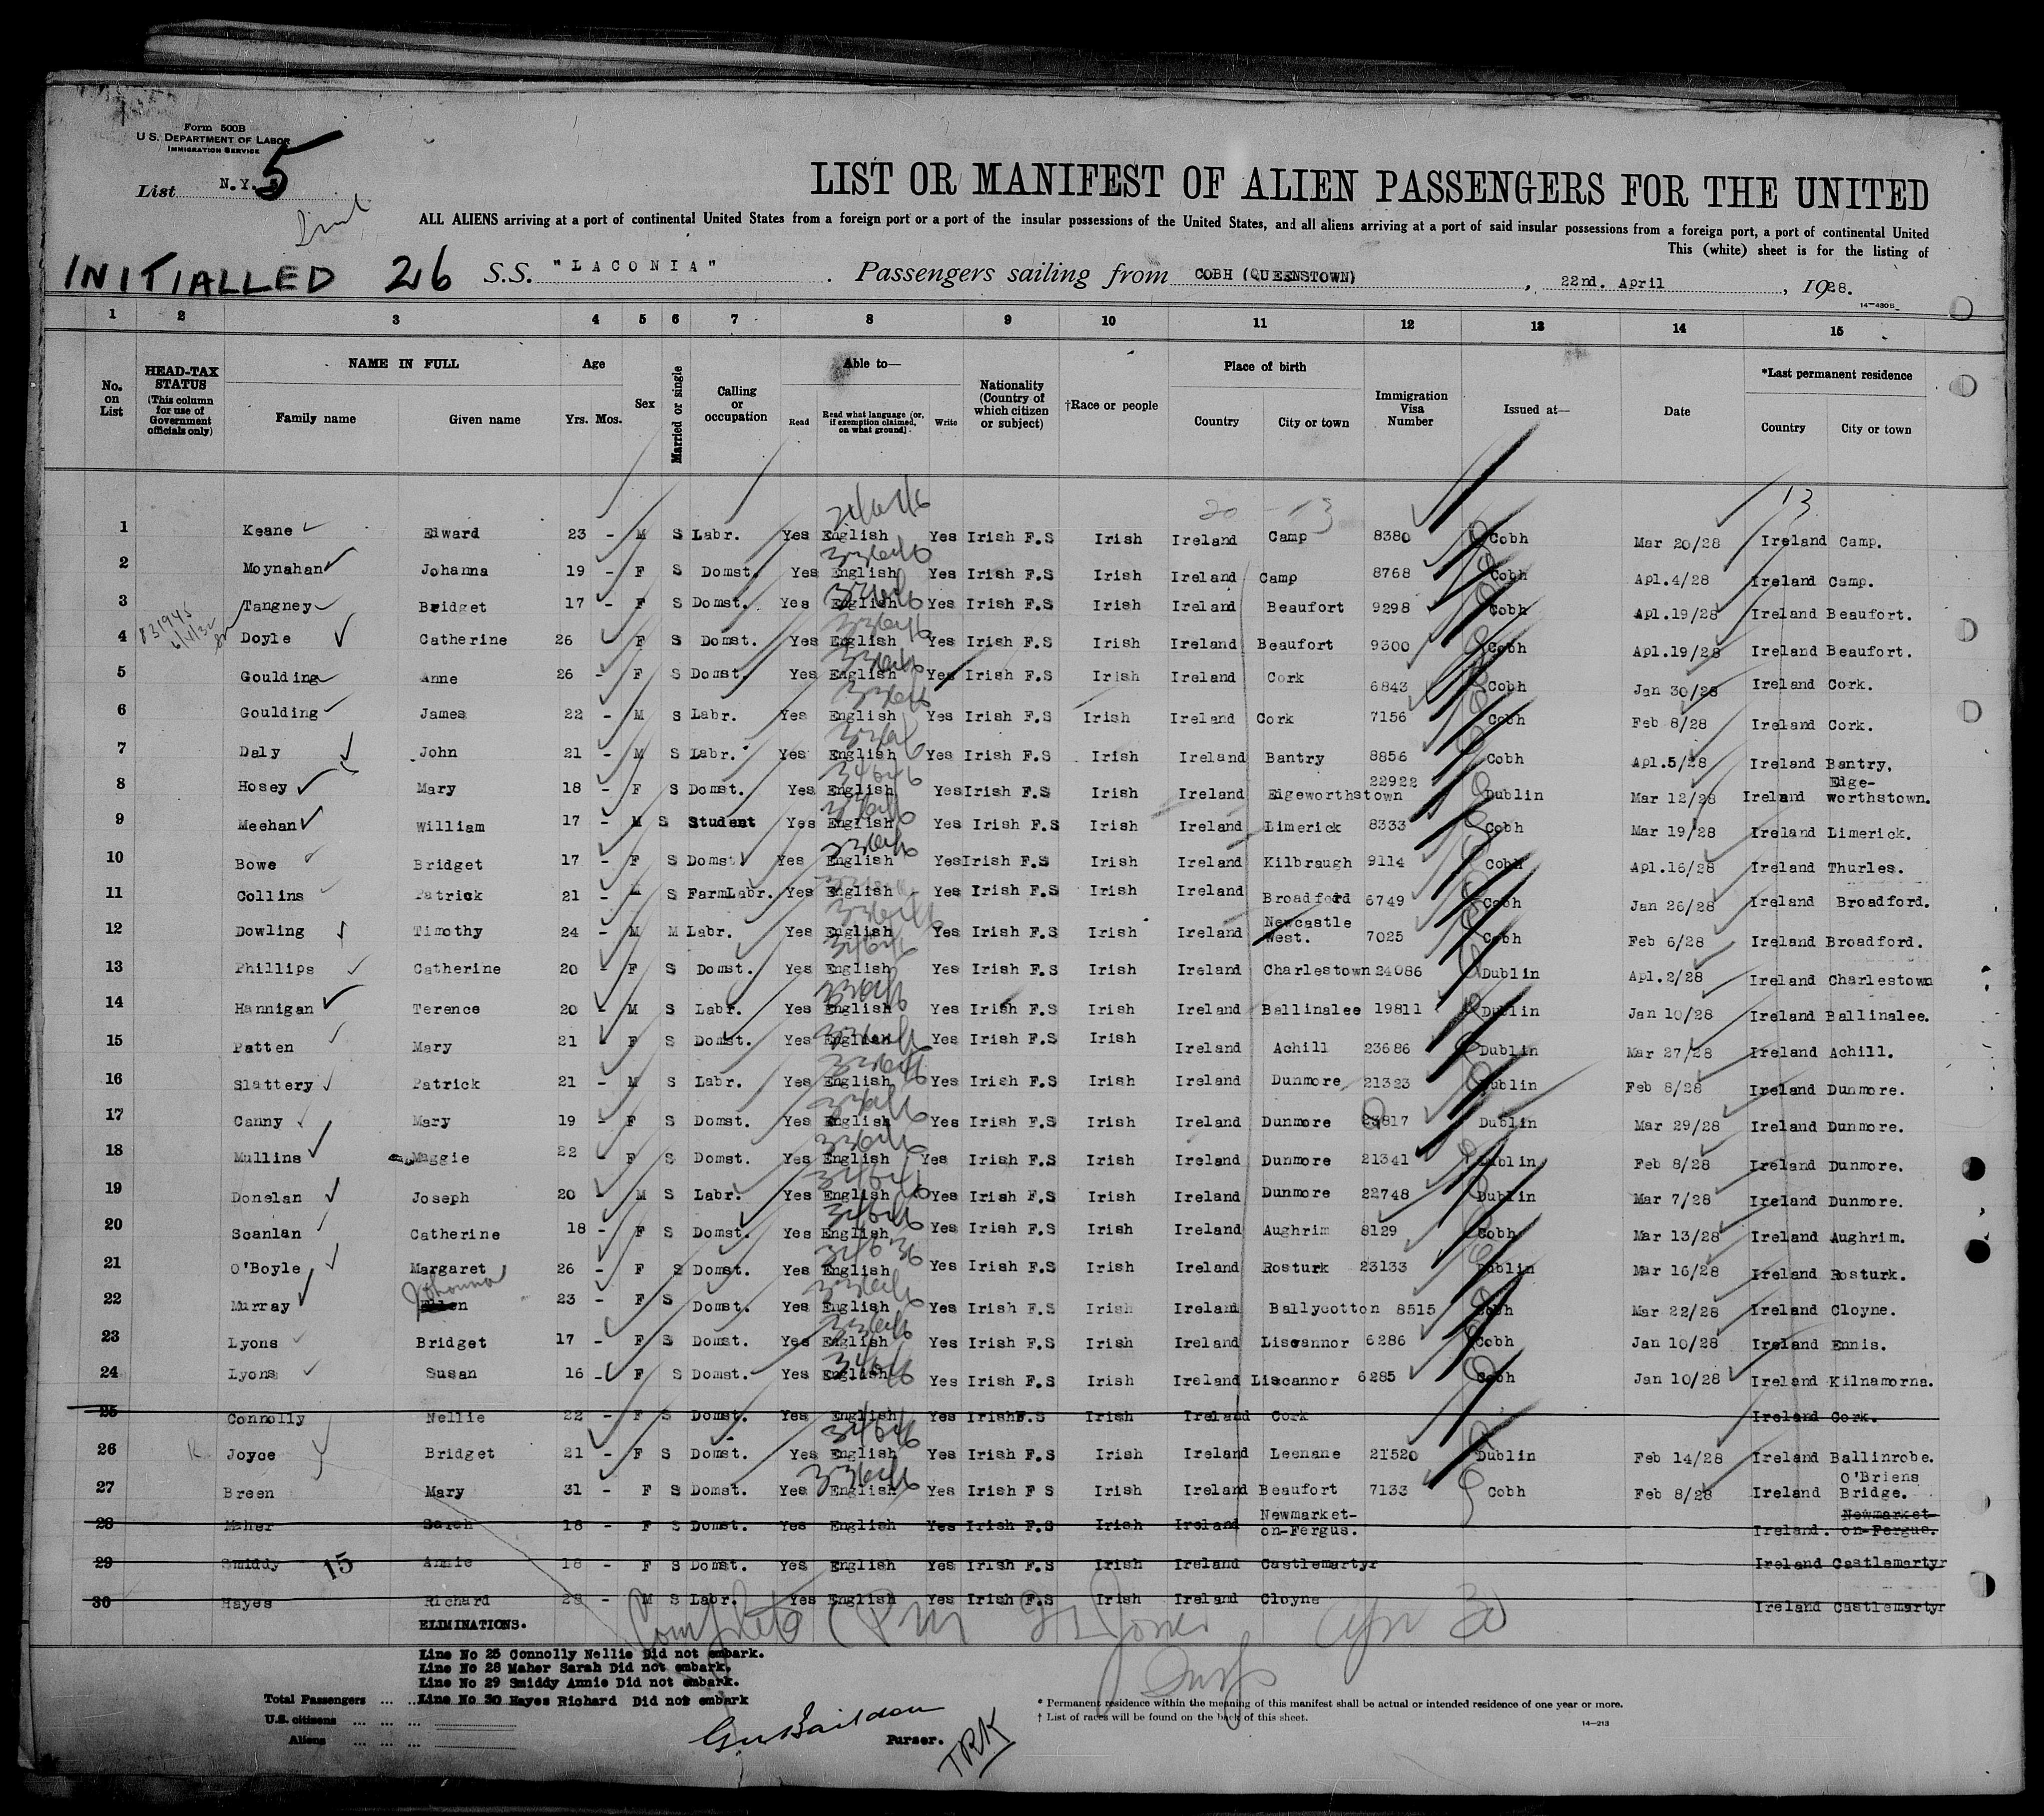 Form 500B
U.S. DEPARTMENT OF LABOR
IMMIGRATION SERVICE
List N.Y. 5
LIST OR MANIFEST OF ALIEN PASSENGERS FOR THE UNITED
ALL ALIENS arriving at a port of continental United States from a foreign port or a port of the insular possessions of the United States, and all aliens arriving at a port of said insular possessions from a foreign port, a port of continental United
This (white) sheet is for the listing of
INITIALLED 26 S.S. "LACONIA" . Passengers sailing from COBH (QUEENSTOWN) , 22nd. April , 1928.
14-430B
1 2 3 4 5 6 7 8 9 10 11 12 13 14 15
No. on List
HEAD-TAX STATUS (This column for use of Government officials only)
NAME IN FULL
Family name Given name
Age
Yrs. Mos.
Sex
Married or single
Calling or occupation
Able to—
Read Read what language (or, if exemption claimed, on what ground) Write
Nationality (Country of which citizen or subject)
†Race or people
Place of birth
Country City or town
Immigration Visa Number
Issued at—
Date
*Last permanent residence
Country City or town
20 - 13 13
1 Keane Edward 23 - M S Labr. Yes English Yes Irish F.S Irish Ireland Camp 8380 Cobh Mar 20/28 Ireland Camp.
2 Moynahan Johanna 19 - F S Domst. Yes English Yes Irish F.S Irish Ireland Camp 8768 Cobh Apl.4/28 Ireland Camp.
3 Tangney Bridget 17 - F S Domst. Yes English Yes Irish F.S Irish Ireland Beaufort 9298 Cobh Apl.19/28 Ireland Beaufort.
4 Doyle Catherine 26 F S Domst. Yes English Yes Irish F.S Irish Ireland Beaufort 9300 Cobh Apl.19/28 Ireland Beaufort.
5 Goulding Anne 26 - F S Domst. Yes English Yes Irish F.S Irish Ireland Cork 6843 Cobh Jan 30/28 Ireland Cork.
6 Goulding James 22 - M S Labr. Yes English Yes Irish F.S Irish Ireland Cork 7156 Cobh Feb 8/28 Ireland Cork.
7 Daly John 21 - M S Labr. Yes English Yes Irish F.S Irish Ireland Bantry 8856 Cobh Apl.5/28 Ireland Bantry.
8 Hosey Mary 18 - F S Domst. Yes English Yes Irish F.S Irish Ireland Edgeworthstown 22922 Dublin Mar 12/28 Ireland Edge-worthstown.
9 Meehan William 17 - M S Student Yes English Yes Irish F.S Irish Ireland Limerick 8333 Cobh Mar 19/28 Ireland Limerick.
10 Bowe Bridget 17 - F S Domst. Yes English Yes Irish F.S Irish Ireland Kilbraugh 9114 Cobh Apl.16/28 Ireland Thurles.
11 Collins Patrick 21 - M S FarmLabr. Yes English Yes Irish F.S Irish Ireland Broadford 6749 Cobh Jan 26/28 Ireland Broadford.
12 Dowling Timothy 24 - M M Labr. Yes English Yes Irish F.S Irish Ireland Newcastle West. 7025 Cobh Feb 6/28 Ireland Broadford.
13 Phillips Catherine 20 - F S Domst. Yes English Yes Irish F.S Irish Ireland Charlestown 24086 Dublin Apl.2/28 Ireland Charlestown
14 Hannigan Terence 20 - M S Labr. Yes English Yes Irish F.S Irish Ireland Ballinalee 19811 Dublin Jan 10/28 Ireland Ballinalee.
15 Patten Mary 21 F S Domst. Yes English Yes Irish F.S Irish Ireland Achill 23686 Dublin Mar 27/28 Ireland Achill.
16 Slattery Patrick 21 - M S Labr. Yes English Yes Irish F.S Irish Ireland Dunmore 21323 Dublin Feb 8/28 Ireland Dunmore.
17 Canny Mary 19 - F S Domst. Yes English Yes Irish F.S Irish Ireland Dunmore 23817 Dublin Mar 29/28 Ireland Dunmore.
18 Mullins Maggie 22 - F S Domst. Yes English Yes Irish F.S Irish Ireland Dunmore 21341 Dublin Feb 8/28 Ireland Dunmore.
19 Donelan Joseph 20 - M S Labr. Yes English Yes Irish F.S Irish Ireland Dunmore 22748 Dublin Mar 7/28 Ireland Dunmore.
20 Scanlan Catherine 18 - F S Domst. Yes English Yes Irish F.S Irish Ireland Aughrim 8129 Cobh Mar 13/28 Ireland Aughrim.
21 O'Boyle Margaret 26 - F S Domst. Yes English Yes Irish F.S Irish Ireland Rosturk 23133 Dublin Mar 16/28 Ireland Rosturk.
22 Murray Johanna Ellen 23 - F S Domst. Yes English Yes Irish F.S Irish Ireland Ballycotton 8515 Cobh Mar 22/28 Ireland Cloyne.
23 Lyons Bridget 17 - F S Domst. Yes English Yes Irish F.S Irish Ireland Liscannor 6286 Cobh Jan 10/28 Ireland Ennis.
24 Lyons Susan 16 - F S Domst. Yes English Yes Irish F.S Irish Ireland Liscannor 6285 Cobh Jan 10/28 Ireland Kilnamorna.
25 Connolly Nellie 22 - F S Domst. Yes English Yes IrishF.S Irish Ireland Cork Ireland Cork.
26 Joyce Bridget 21 - F S Domst. Yes English Yes Irish F.S Irish Ireland Leenane 21520 Dublin Feb 14/28 Ireland Ballinrobe.
27 Breen Mary 31 - F S Domst. Yes English Yes Irish F S Irish Ireland Beaufort 7133 Cobh Feb 8/28 Ireland O'Briens Bridge.
28 Maher Sarah 18 - F S Domst. Yes English Yes Irish F.S Irish Ireland Newmarket-on-Fergus. Ireland. Newmarket-on-Fergus.
29 Smiddy 15 Annie 18 - F S Domst. Yes English Yes Irish F.S Irish Ireland Castlemartyr Ireland Castlemartyr
30 Hayes Richard 28 - M S Labr. Yes English Yes Irish F.S Irish Ireland Cloyne Ireland Castlemartyr
ELIMINATIONS.
Line No 25 Connolly Nellie Did not embark.
Line No 28 Maher Sarah Did not embark.
Line No 29 Smiddy Annie Did not embark.
Total Passengers ... ... Line No 30 Hayes Richard Did not embark
U.S. citizens ... ... ...
Aliens ... ... ...
Purser.
TRK
* Permanent residence within the meaning of this manifest shall be actual or intended residence of one year or more.
† List of races will be found on the back of this sheet.
14-213